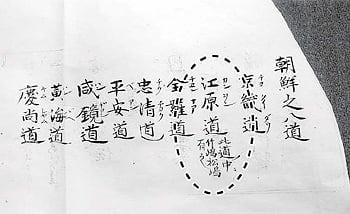 朝鮮之八道
京畿道
江原道 此道中ニ竹嶋松嶋有之
全羅道
忠清道
平安道
咸鏡道
黄海道
慶尚道